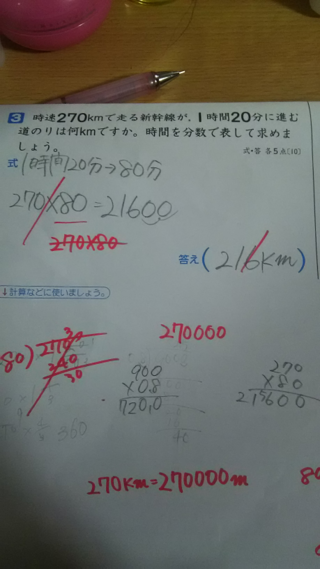 3 時速270kmで走る新幹線が、1時間20分に進む
道のりは何kmですか。時間を分数で表して求めま
しょう。
式・答 各5点(10)
式 1時間20分→80分
270×80=21600
270×80
答え (216km)
↓計算などに使いましょう。
270000
900
×08
720,0
270
×80
21600
270km=270000m